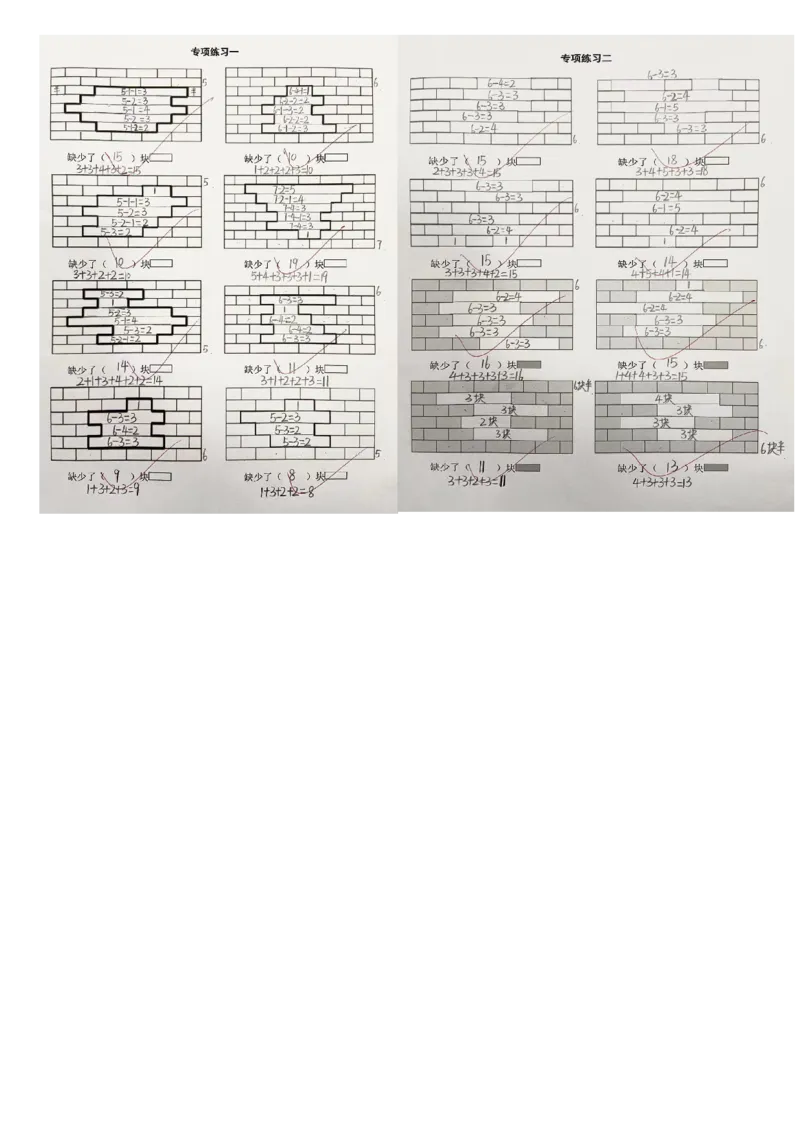 专项练习一
5
半 5-1-1=3 半
5-2=3
5-1=4
5-2=3
5-1-2=2
缺少了（ 15 ）块
3+3+4+3+2=15
6
6-2-2=2
6-1-3=2
6-2-2=2
6-1-2=3
缺少了（ 10 ）块
1+2+2+2+3=10
5
1
5-1-1=3
5-2=3
5-2-1=2
5-3=2
缺少了（ 10 ）块
3+3+2+2=10
7-2=5
7-2-1=4
7-4=3
7-4-1=3
7-4=3
1
7
缺少了（ 19 ）块
5+4+3+3+3+1=19
5-3=2
1
5-2=3
5-1=4
5-3=2
5-2-1=2
5
缺少了（ 14 ）块
2+1+3+4+2+2=14
6
6-3=3
1
6-4=2
6-4=2
6-3=3
缺少了（ 11 ）块
3+1+2+2+3=11
1
6-3=3
6-4=2
6-3=3
6
缺少了（ 9 ）块
1+3+2+3=9
1
5-2=3
5-3=2
5-3=2
5
缺少了（ 8 ）块
1+3+2+2=8
专项练习二
6-4=2
6-3=3
6-3=3
6-3=3
6-2=4
6
缺少了（ 15 ）块
2+3+3+3+4=15
6-3=3
6-2=4
6-1=5
6-3=3
6-3=3
6
缺少了（ 18 ）块
3+4+5+3+3=18
6-3=3
6-3=3
6
6-3=3
6-2=4
1 1
缺少了（ 15 ）块
3+3+3+4+2=15
6
6-2=4
6-1=5
6-2=4
1
缺少了（ 14 ）块
4+5+4+1=14
6
6-2=4
6-3=3
6-3=3
6-3=3
6-3=3
缺少了（ 16 ）块
4+3+3+3+3=16
1
6-2=4
6-2=4
6-3=3
6-3=3
6
缺少了（ 15 ）块
1+4+4+3+3=15
6块半
3块
3块
2块
3块
缺少了（ 11 ）块
3+3+2+3=11
4块
3块
3块
3块
6块半
缺少了（ 13 ）块
4+3+3+3=13